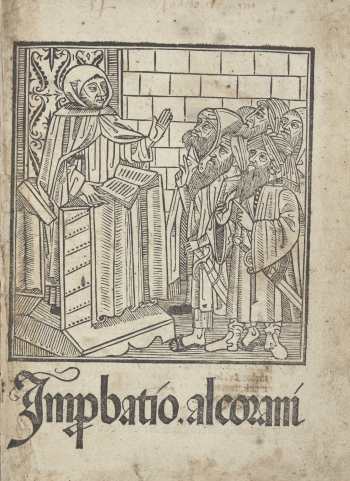 Imꝓbatio . alcorani